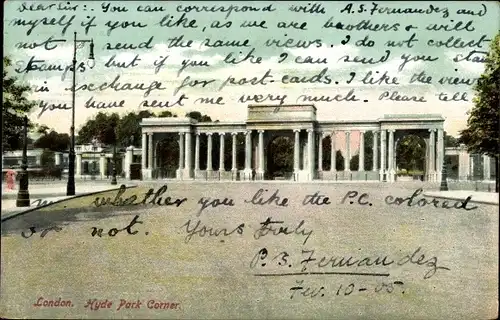 Dear Sir:. You can correspond with A.S. Fernandez and
myself if you like, as we are brothers & will
not send the same views. I do not collect
Stamps but if you like I can send you stamps
in exchange for post-cards. I like the views
you have sent me very much. Please tell
me whether you like the P.C. colored
or not. Yours truly
P.S. Fernandez
Fev. 10-05.
London. Hyde Park Corner.